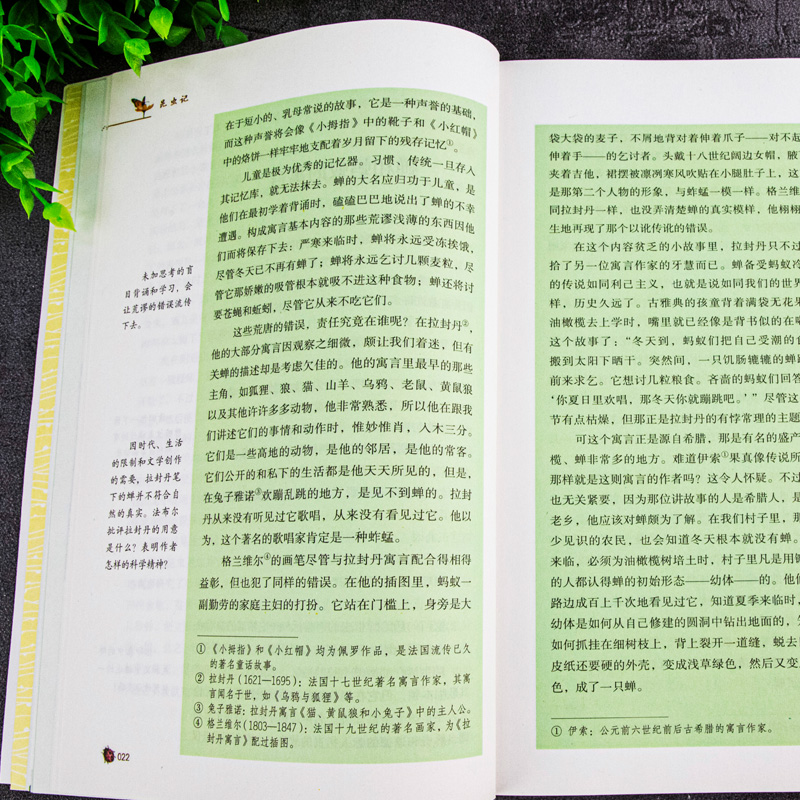 昆虫记
在于短小的、乳母常说的故事，它是一种声誉的基础，
而这种声誉将会像《小拇指》中的靴子和《小红帽》
中的烙饼一样牢牢地支配着岁月留下的残存记忆①。
儿童是极为优秀的记忆器。习惯、传统一旦存入
其记忆库，就无法抹去。蝉的大名应归功于儿童，是
他们在最初学着背诵时，磕磕巴巴地说出了蝉的不幸
遭遇。构成寓言基本内容的那些荒谬浅薄的东西因他
们而将保存下去：严寒来临时，蝉将永远受冻挨饿，
尽管冬天已不再有蝉了；蝉将永远乞讨几颗麦粒，尽
管它那娇嫩的吸管根本就吸不进这种食物；蝉还将讨
要苍蝇和蚯蚓，尽管它从来不吃它们。
这些荒唐的错误，责任究竟在谁呢？在拉封丹②，
他的大部分寓言因观察之细微，颇让我们着迷，但有
关蝉的描述却是考虑欠佳的。他的寓言里最早的那些
主角，如狐狸、狼、猫、山羊、乌鸦、老鼠、黄鼠狼
以及其他许许多多动物，他非常熟悉，所以他在跟我
们讲述它们的事情和动作时，惟妙惟肖，入木三分。
它们是一些高地的动物，是他的邻居，是他的常客。
它们公开的和私下的生活都是他天天所见的，但是，
在兔子雅诺③欢蹦乱跳的地方，是见不到蝉的。拉封
丹从来没有听见过它歌唱，从来没有看见过它。他以
为，这个著名的歌唱家肯定是一种蚱蜢。
格兰维尔④的画笔尽管与拉封丹寓言配合得相得
益彰，但也犯了同样的错误。在他的插图里，蚂蚁一
副勤劳的家庭主妇的打扮。它站在门槛上，身旁是大
未加思考的盲
目背诵和学习，会
让荒谬的错误流传
下去。
因时代、生活
的限制和文学创作
的需要，拉封丹笔
下的蝉并不符合自
然的真实。法布尔
批评拉封丹的用意
是什么？表明作者
怎样的科学精神？
①《小拇指》和《小红帽》均为佩罗作品，是法国流传已久
的著名童话故事。
② 拉封丹（1621—1695）：法国十七世纪著名寓言作家，其寓
言闻名于世，如《乌鸦与狐狸》等。
③ 兔子雅诺：拉封丹寓言《猫、黄鼠狼和小兔子》中的主人公。
④ 格兰维尔（1803—1847）：法国十九世纪的著名画家，为《拉
封丹寓言》配过插图。
022
袋大袋的麦子，不屑地背对着伸着爪子——对不起
伸着手——的乞讨者。头戴十八世纪阔边女帽，腋
夹着吉他，裙摆被凛冽寒风吹贴在小腿肚子上，这
是那第二个人物的形象，与蚱蜢一模一样。格兰维
同拉封丹一样，也没弄清楚蝉的真实模样，他栩栩
生地再现了那个以讹传讹的错误。
在这个内容贫乏的小故事里，拉封丹只不过
拾了另一位寓言作家的牙慧而已。蝉备受蚂蚁冷
的传说如同利己主义，也就是说如同我们的世界
样，历史久远了。古雅典的孩童背着满袋无花果
油橄榄去上学时，嘴里就已经像是背书似的在嘟
这个故事了：“冬天到，蚂蚁们把自己受潮的食
搬到太阳下晒干。突然间，一只饥肠辘辘的蝉
前来求乞。它想讨几粒粮食。吝啬的蚂蚁们回答
‘你夏日里欢唱，那冬天你就蹦跳吧。’”尽管这
节有点枯燥，但那正是拉封丹的有悖常理的主题
可这个寓言正是源自希腊，那是有名的盛产
榄、蝉非常多的地方。难道伊索①果真像传说所
那样就是这则寓言的作者吗？这令人怀疑。不过
也无关紧要，因为那位讲故事的人是希腊人，是
老乡，他应该对蝉颇为了解。在我们村子里，那
少见识的农民，也会知道冬天根本就没有蝉。
来临，必须为油橄榄树培土时，村子里凡是用锹
的人都认得蝉的初始形态——幼体——的。他们
路边成百上千次地看见过它，知道夏季来临时，
幼体是如何从自己修建的圆洞中钻出地面的，
如何抓挂在细树枝上，背上裂开一道缝，蜕去
皮纸还要硬的外壳，变成浅草绿色，然后又变
色，成了一只蝉。
① 伊索：公元前六世纪前后古希腊的寓言作家。